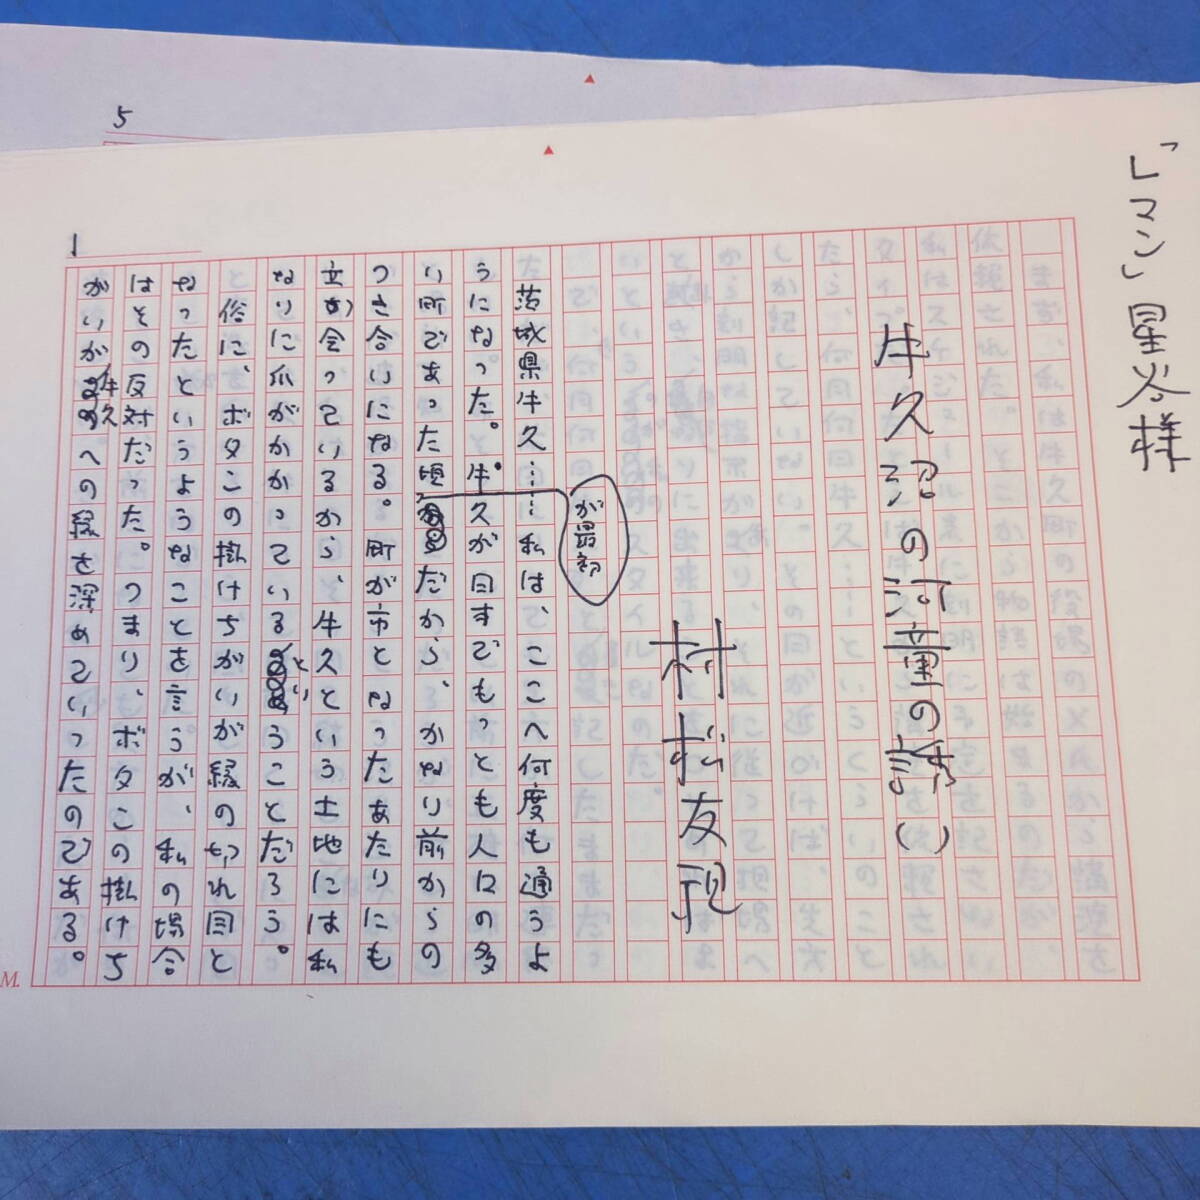 「レマン」星谷様
牛久沼の河童の譜(一)
村松友視
茨城県牛久……私は、ここへ何度も通うよ
うになった。牛久が日すでもっとも人口の多
い町であった頃
が最初
だから、かなり前からの
つき合いになる。町が市となったあたりにも
立ち会っているから、牛久という土地には私
なりに爪がかかっているということだろう。
俗に、ボタンの掛けちがいが縁の切れ目と
なったというようなことを言うが、私の場合
はその反対だった。つまり、ボタンの掛けち
がいが牛久への縁を深めていったのである。
1
5